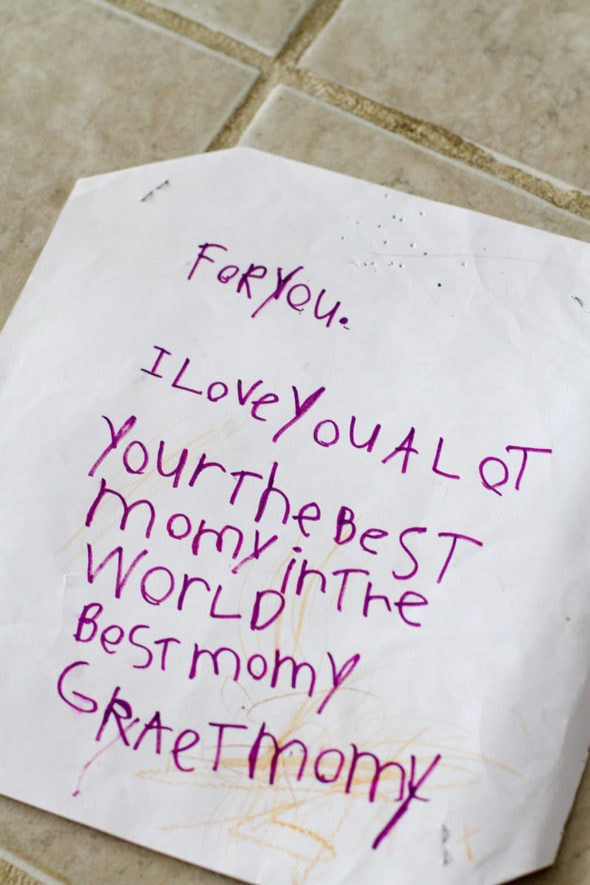 FoR YOU.
I Love YOU A LOT
YOUr The BeST
momy in The
WOrLD
BeST momy
GRAeT momy